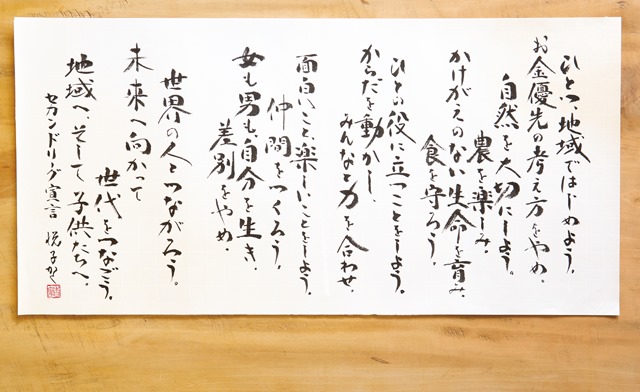 ひとつ、地域ではじめよう。
お金優先の考え方をやめ、
自然を大切にしよう。
農を楽しみ、
食を守ろう。
かけがえのない生命を育み、
ひとの役に立つことをしよう。
からだを動かし、
みんなと力を合わせ、
面白いこと、楽しいことをしよう。
仲間をつくろう。
女も男も、自分を生き、
差別をやめ、
世界の人とつながろう。
未来へ向かって
世代をつなごう。
地域へ、そして子供たちへ。
セカンドリーグ宣言 悦子書